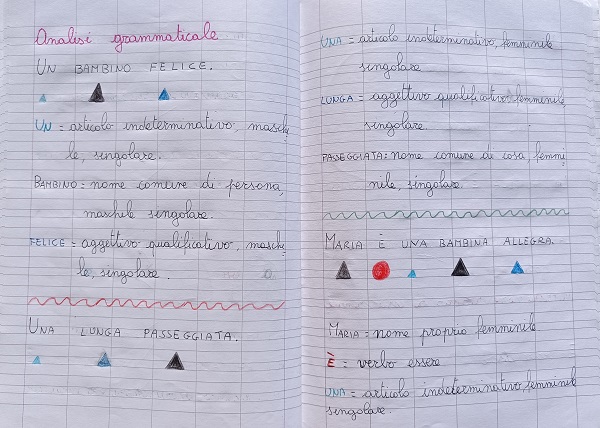 Analisi grammaticale
UN BAMBINO FELICE.
UN = articolo indeterminativo, maschi
le, singolare.
BAMBINO = nome comune di persona,
maschile singolare.
FELICE = aggettivo qualificativo, maschi
le, singolare.
UNA LUNGA PASSEGGIATA.
UNA = articolo indeterminativo, femminile
singolare
LUNGA = aggettivo qualificativo femminile,
singolare.
PASSEGGIATA: nome comune di cosa femmi
nile, singolare.
MARIA È UNA BAMBINA ALLEGRA.
MARIA = nome proprio femminile
È = verbo essere
UNA = articolo indeterminativo, femminile
singolare.